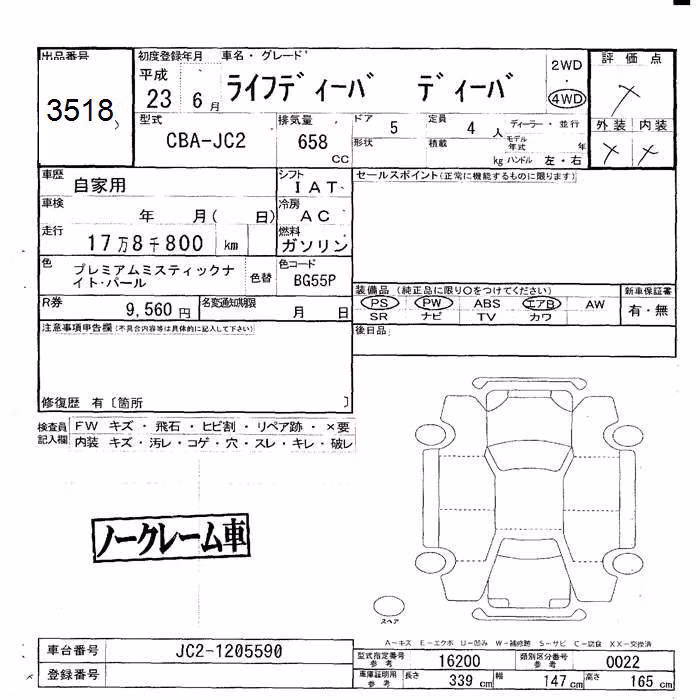 出品番号
3518
初度登録年月
平成
23 6月
車名・グレード
ライフディーバ ディーバ
2WD
・
4WD
評価点
外装 内装
型式
CBA-JC2
排気量
658
CC
ドア
5
定員
4 人
ディーラー・並行
モデル年式 年式
形状
積載
kg ハンドル 左・右
車歴
自家用
シフト
IAT
セールスポイント(正常に機能するものに限ります)
車検
年 月( 日)
冷房
AC
走行
17万8千800 km
燃料
ガソリン
色
プレミアムミスティックナ
イト・パール
色替
色コード
BG55P
R券
9,560円
名変通知期限
月 日
装備品 (純正品に限り○をつけてください)
PS PW ABS エアB AW
SR ナビ TV カワ
新車保証書
有・無
注意事項申告欄(不具合内容等は具体的に記入して下さい)
後日品
修復歴 有〔箇所 〕
検査員
記入欄
FW キズ・飛石・ヒビ割・リペア跡・×要
内装 キズ・汚レ・コゲ・穴・スレ・キレ・破レ
ノークレーム車
スペア
A－キズ E－エクボ U－凹み W－補修跡 S－サビ C－腐食 XX－交換済
車台番号
JC2-1205590
登録番号
型式指定番号
参考
16200
類別区分番号
参考
0022
車庫証明用
参考
長さ
339 cm
幅
147 cm
高さ
165 cm